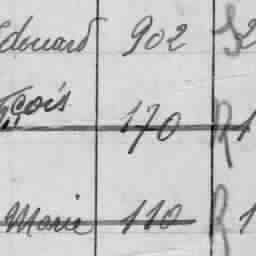 Edouard 902 2
Fçois 170 R 1
Marie 110 R 1